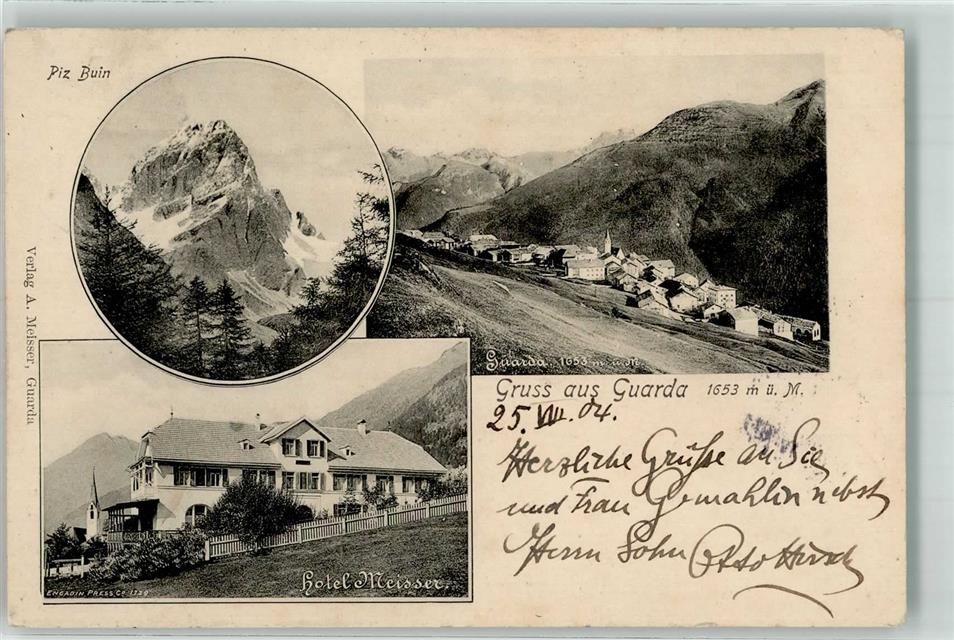 Piz Buin
Verlag A. Meisser, Guarda
Guarda 1653 m ü. M.
Gruss aus Guarda 1653 m ü. M.
25. VIII. 04.
Herzliche Grüße an Sie
und Frau Gemahlin nebst
Herrn Sohn Otto Hirsch
Hotel Meisser.
ENGADIN PRESS Co 1729